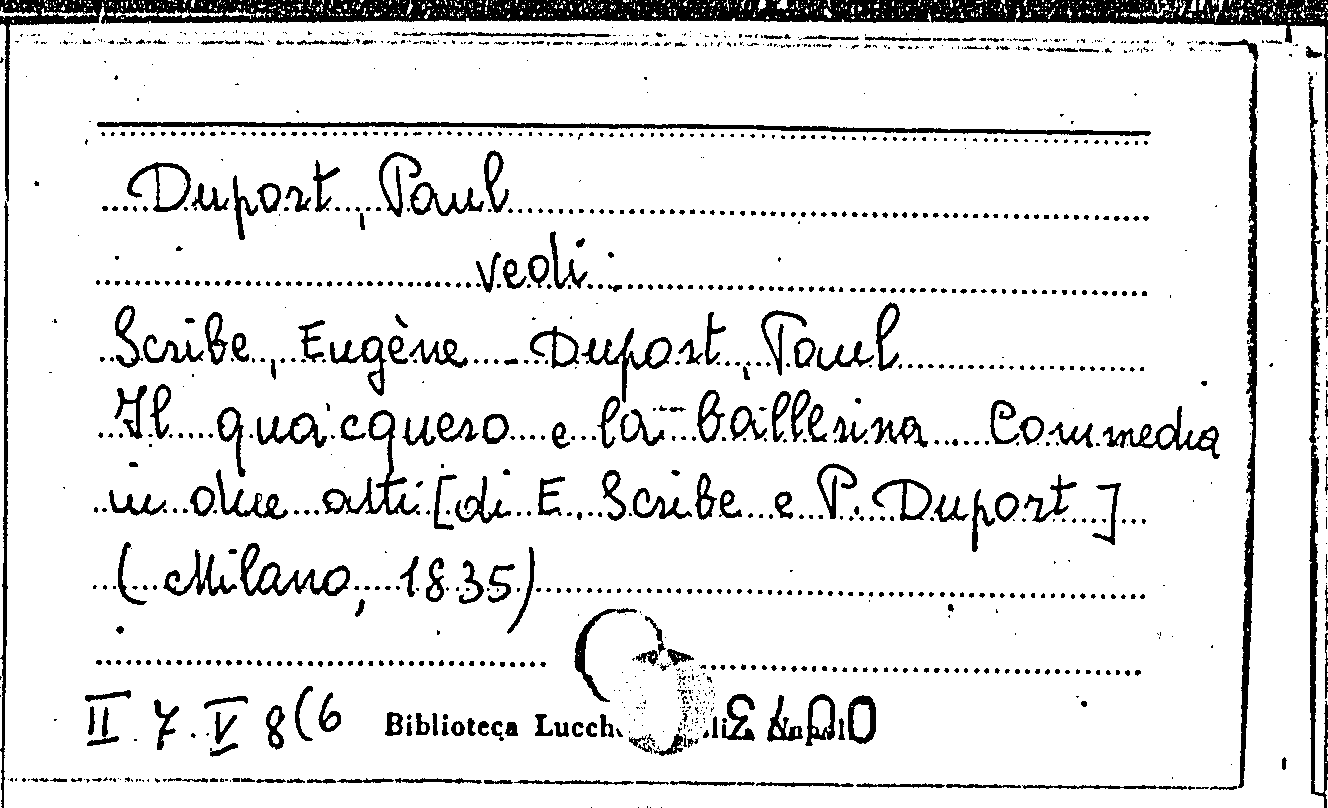 Duport, Paul
vedi:
Scribe, Eugène - Duport, Paul
Il quacquero e la ballerina. Commedia
in due atti [di E. Scribe e P. Duport]
(Milano, 1835)
II 7. V 8(6 Biblioteca